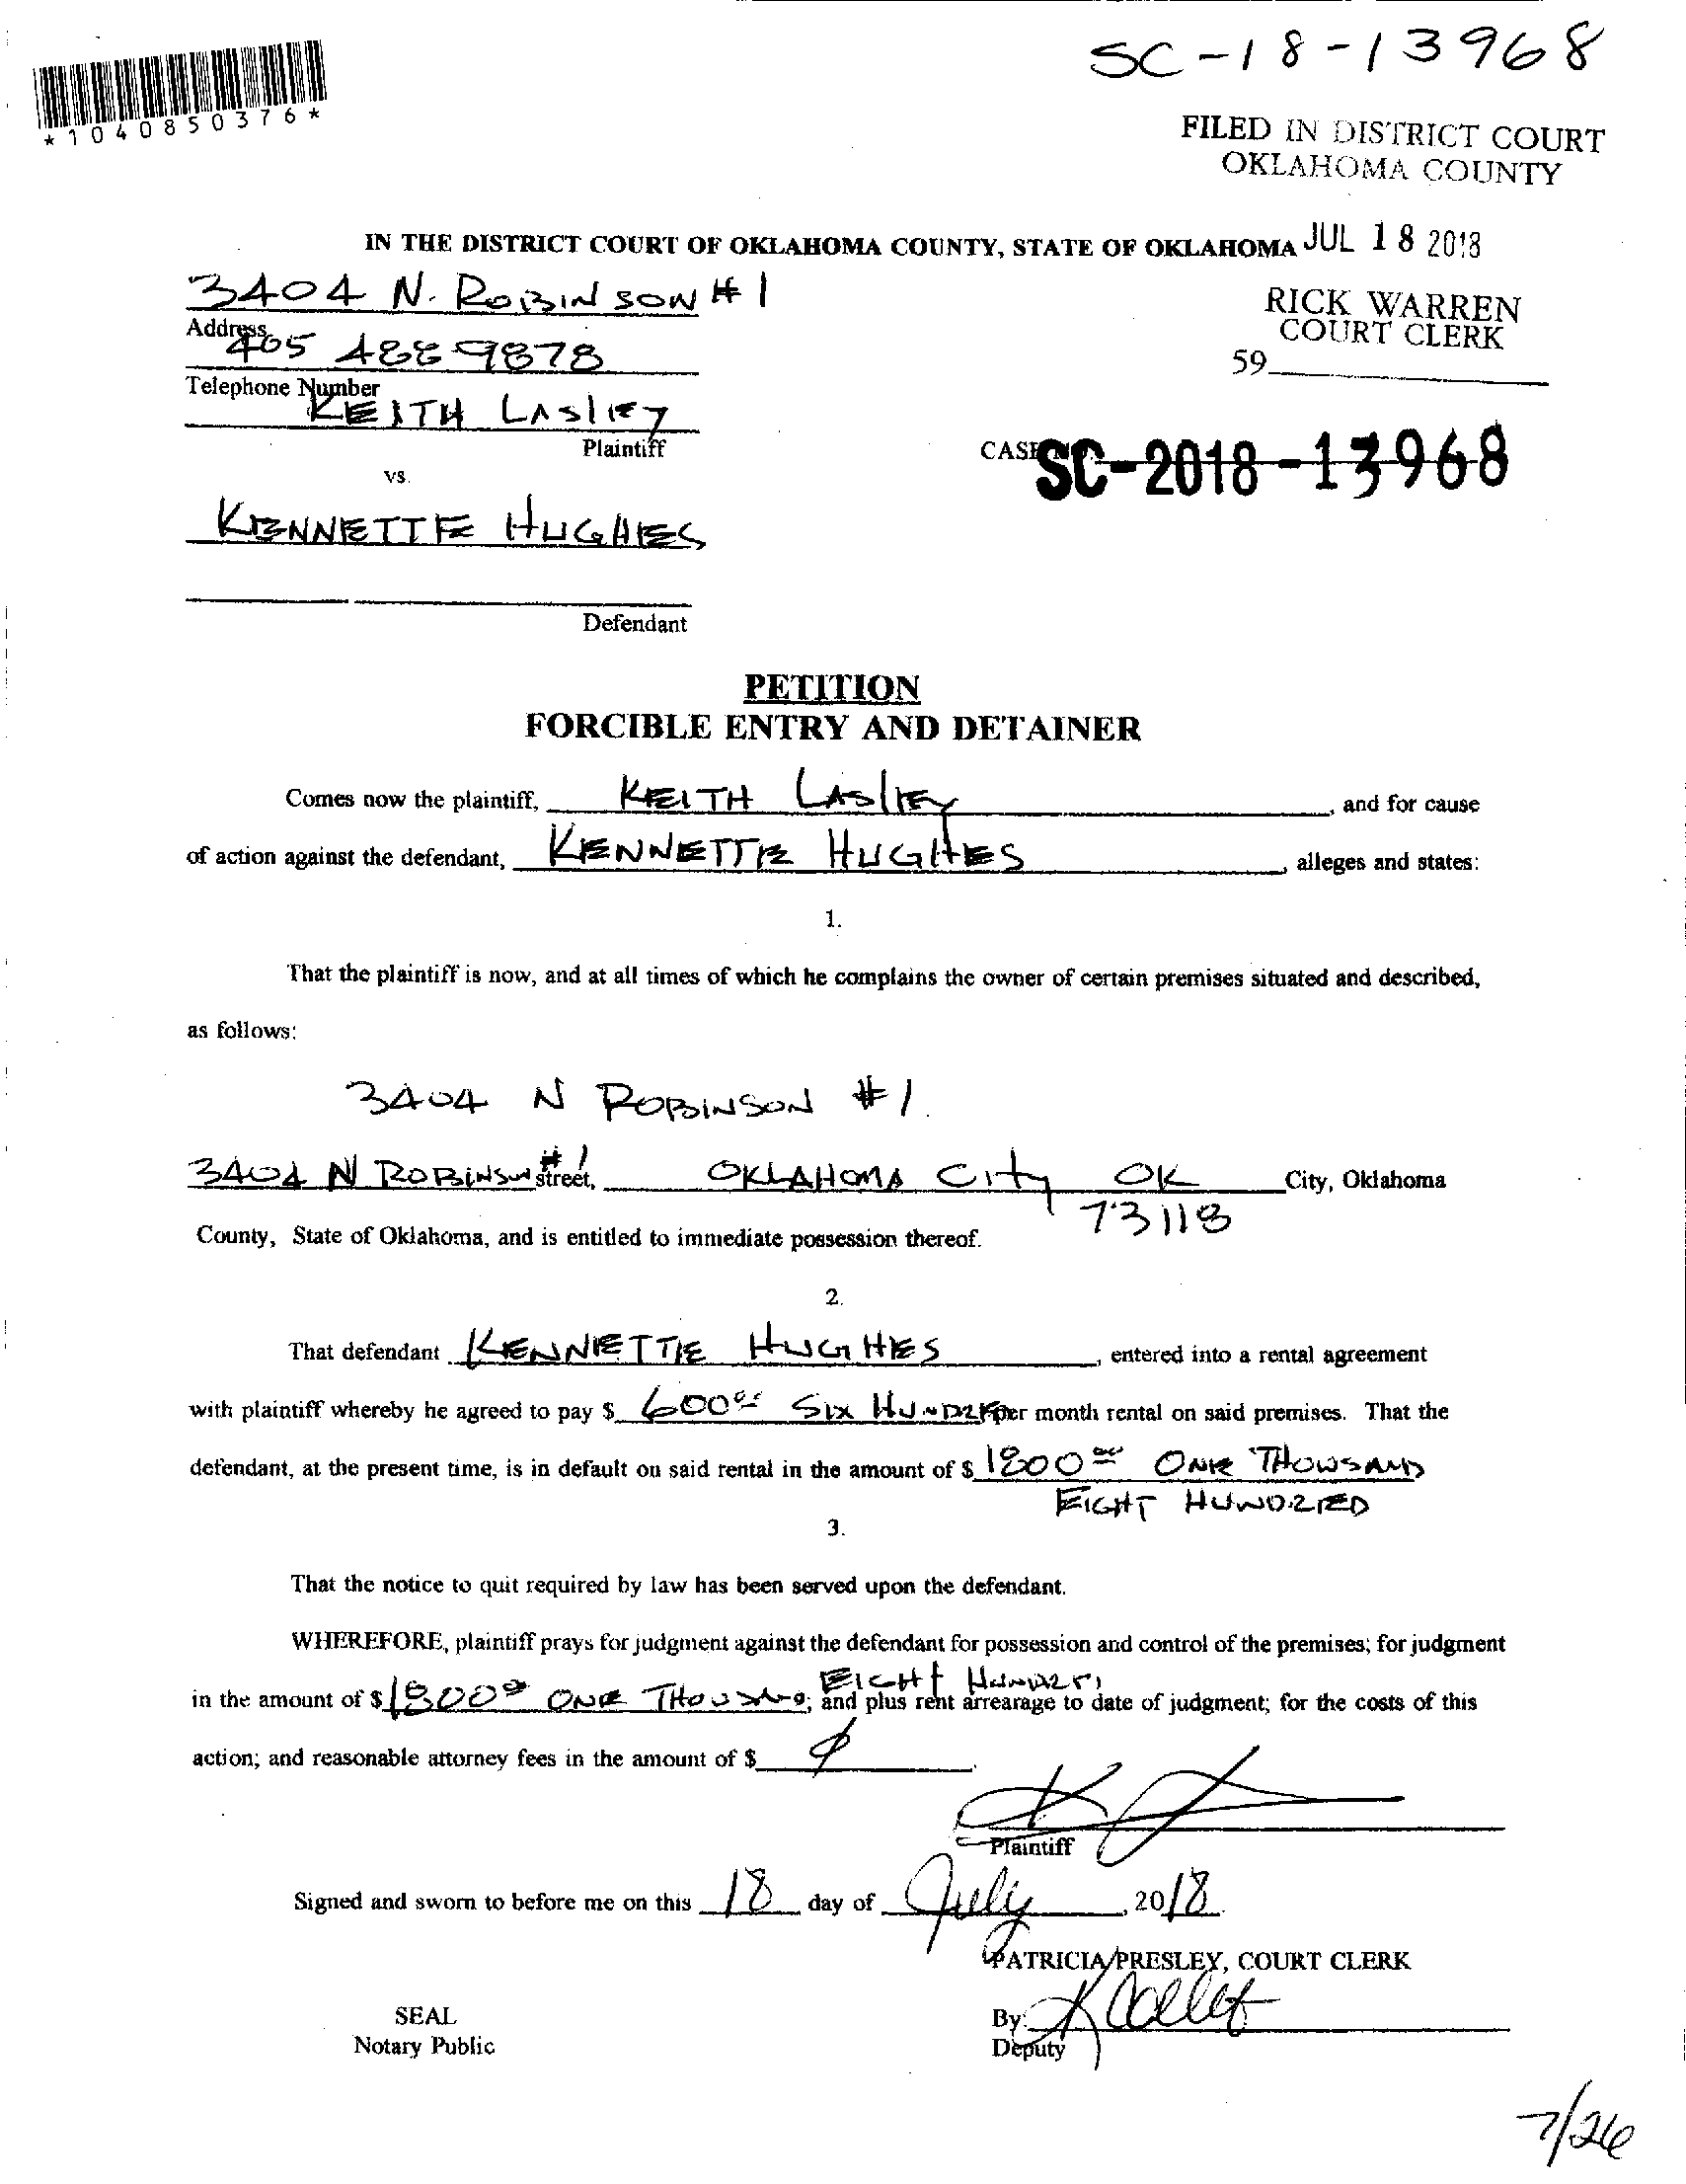 SC-18-13968
*1040850376*
FILED IN DISTRICT COURT
OKLAHOMA COUNTY
IN THE DISTRICT COURT OF OKLAHOMA COUNTY, STATE OF OKLAHOMA JUL 18 2018
3404 N. ROBINSON #1
RICK WARREN
COURT CLERK
Address
405 488-9878
59
Telephone Number
KEITH LASLEY
Plaintiff
CASE NO. SC-2018-13968
vs.
KENNETTE HUGHES
Defendant
PETITION
FORCIBLE ENTRY AND DETAINER
Comes now the plaintiff, KEITH LASLEY, and for cause
of action against the defendant, KENNETTE HUGHES, alleges and states:
1.
That the plaintiff is now, and at all times of which he complains the owner of certain premises situated and described,
as follows:
3404 N ROBINSON #1
3404 N ROBINSON #1 street, OKLAHOMA City OK City, Oklahoma
73118
County, State of Oklahoma, and is entitled to immediate possession thereof.
2.
That defendant KENNETTE HUGHES, entered into a rental agreement
with plaintiff whereby he agreed to pay $ 600.00 SIX HUNDRED per month rental on said premises. That the
defendant, at the present time, is in default on said rental in the amount of $ 1800.00 ONE THOUSAND
EIGHT HUNDRED
3.
That the notice to quit required by law has been served upon the defendant.
WHEREFORE, plaintiff prays for judgment against the defendant for possession and control of the premises; for judgment
EIGHT HUNDRED
in the amount of $ 1800.00 ONE THOUSAND; and plus rent arrearage to date of judgment; for the costs of this
action; and reasonable attorney fees in the amount of $
Plaintiff
Signed and sworn to before me on this 18 day of July, 2018.
PATRICIA PRESLEY, COURT CLERK
SEAL
By:
Notary Public
Deputy
7/26